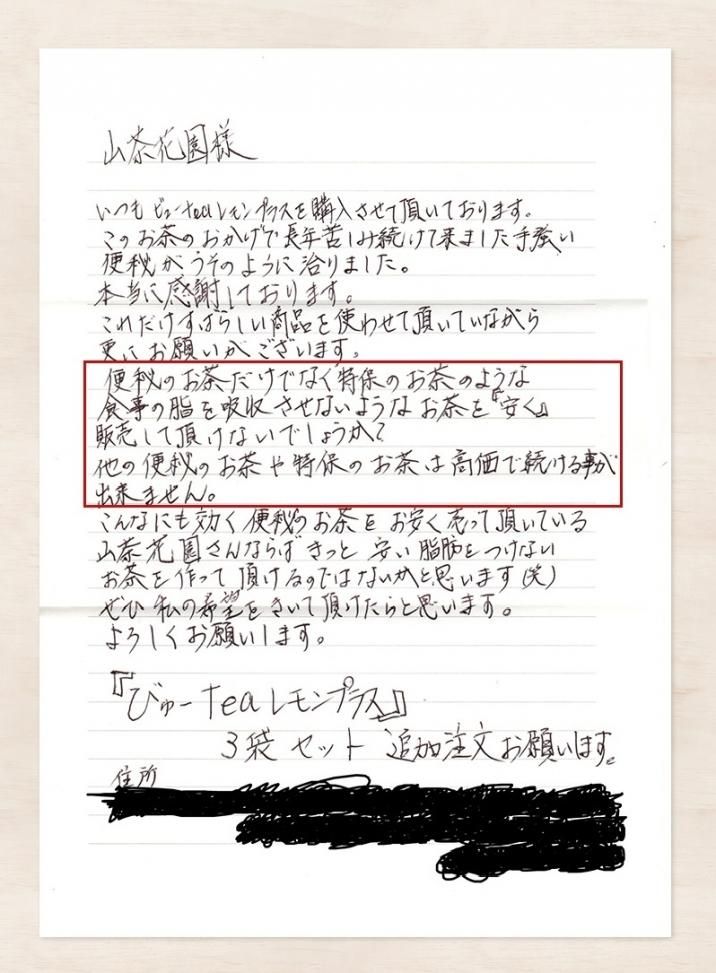 山茶花園様
いつも ビューteaレモンプラスを購入させて頂いております。
このお茶のおかげで長年苦しみ続けて来ました手強い
便秘がうそのように治りました。
本当に感謝しております。
これだけすばらしい商品を使わせて頂いていながら
更にお願いがございます。
便秘のお茶だけでなく特保のお茶のような
食事の脂を吸収させないようなお茶を『安く』
販売して頂けないでしょうか?
他の便秘のお茶や特保のお茶は高価で続ける事が
出来ません。
こんなにも効く便秘のお茶をお安く売って頂いている
山茶花園さんならばきっと安い脂肪をつけない
お茶を作って頂けるのではないかと思います(笑)
ぜひ私の希望をきいて頂けたらと思います。
よろしくお願いします。
『びゅーteaレモンプラス』
3袋セット 追加注文お願いします。
住所